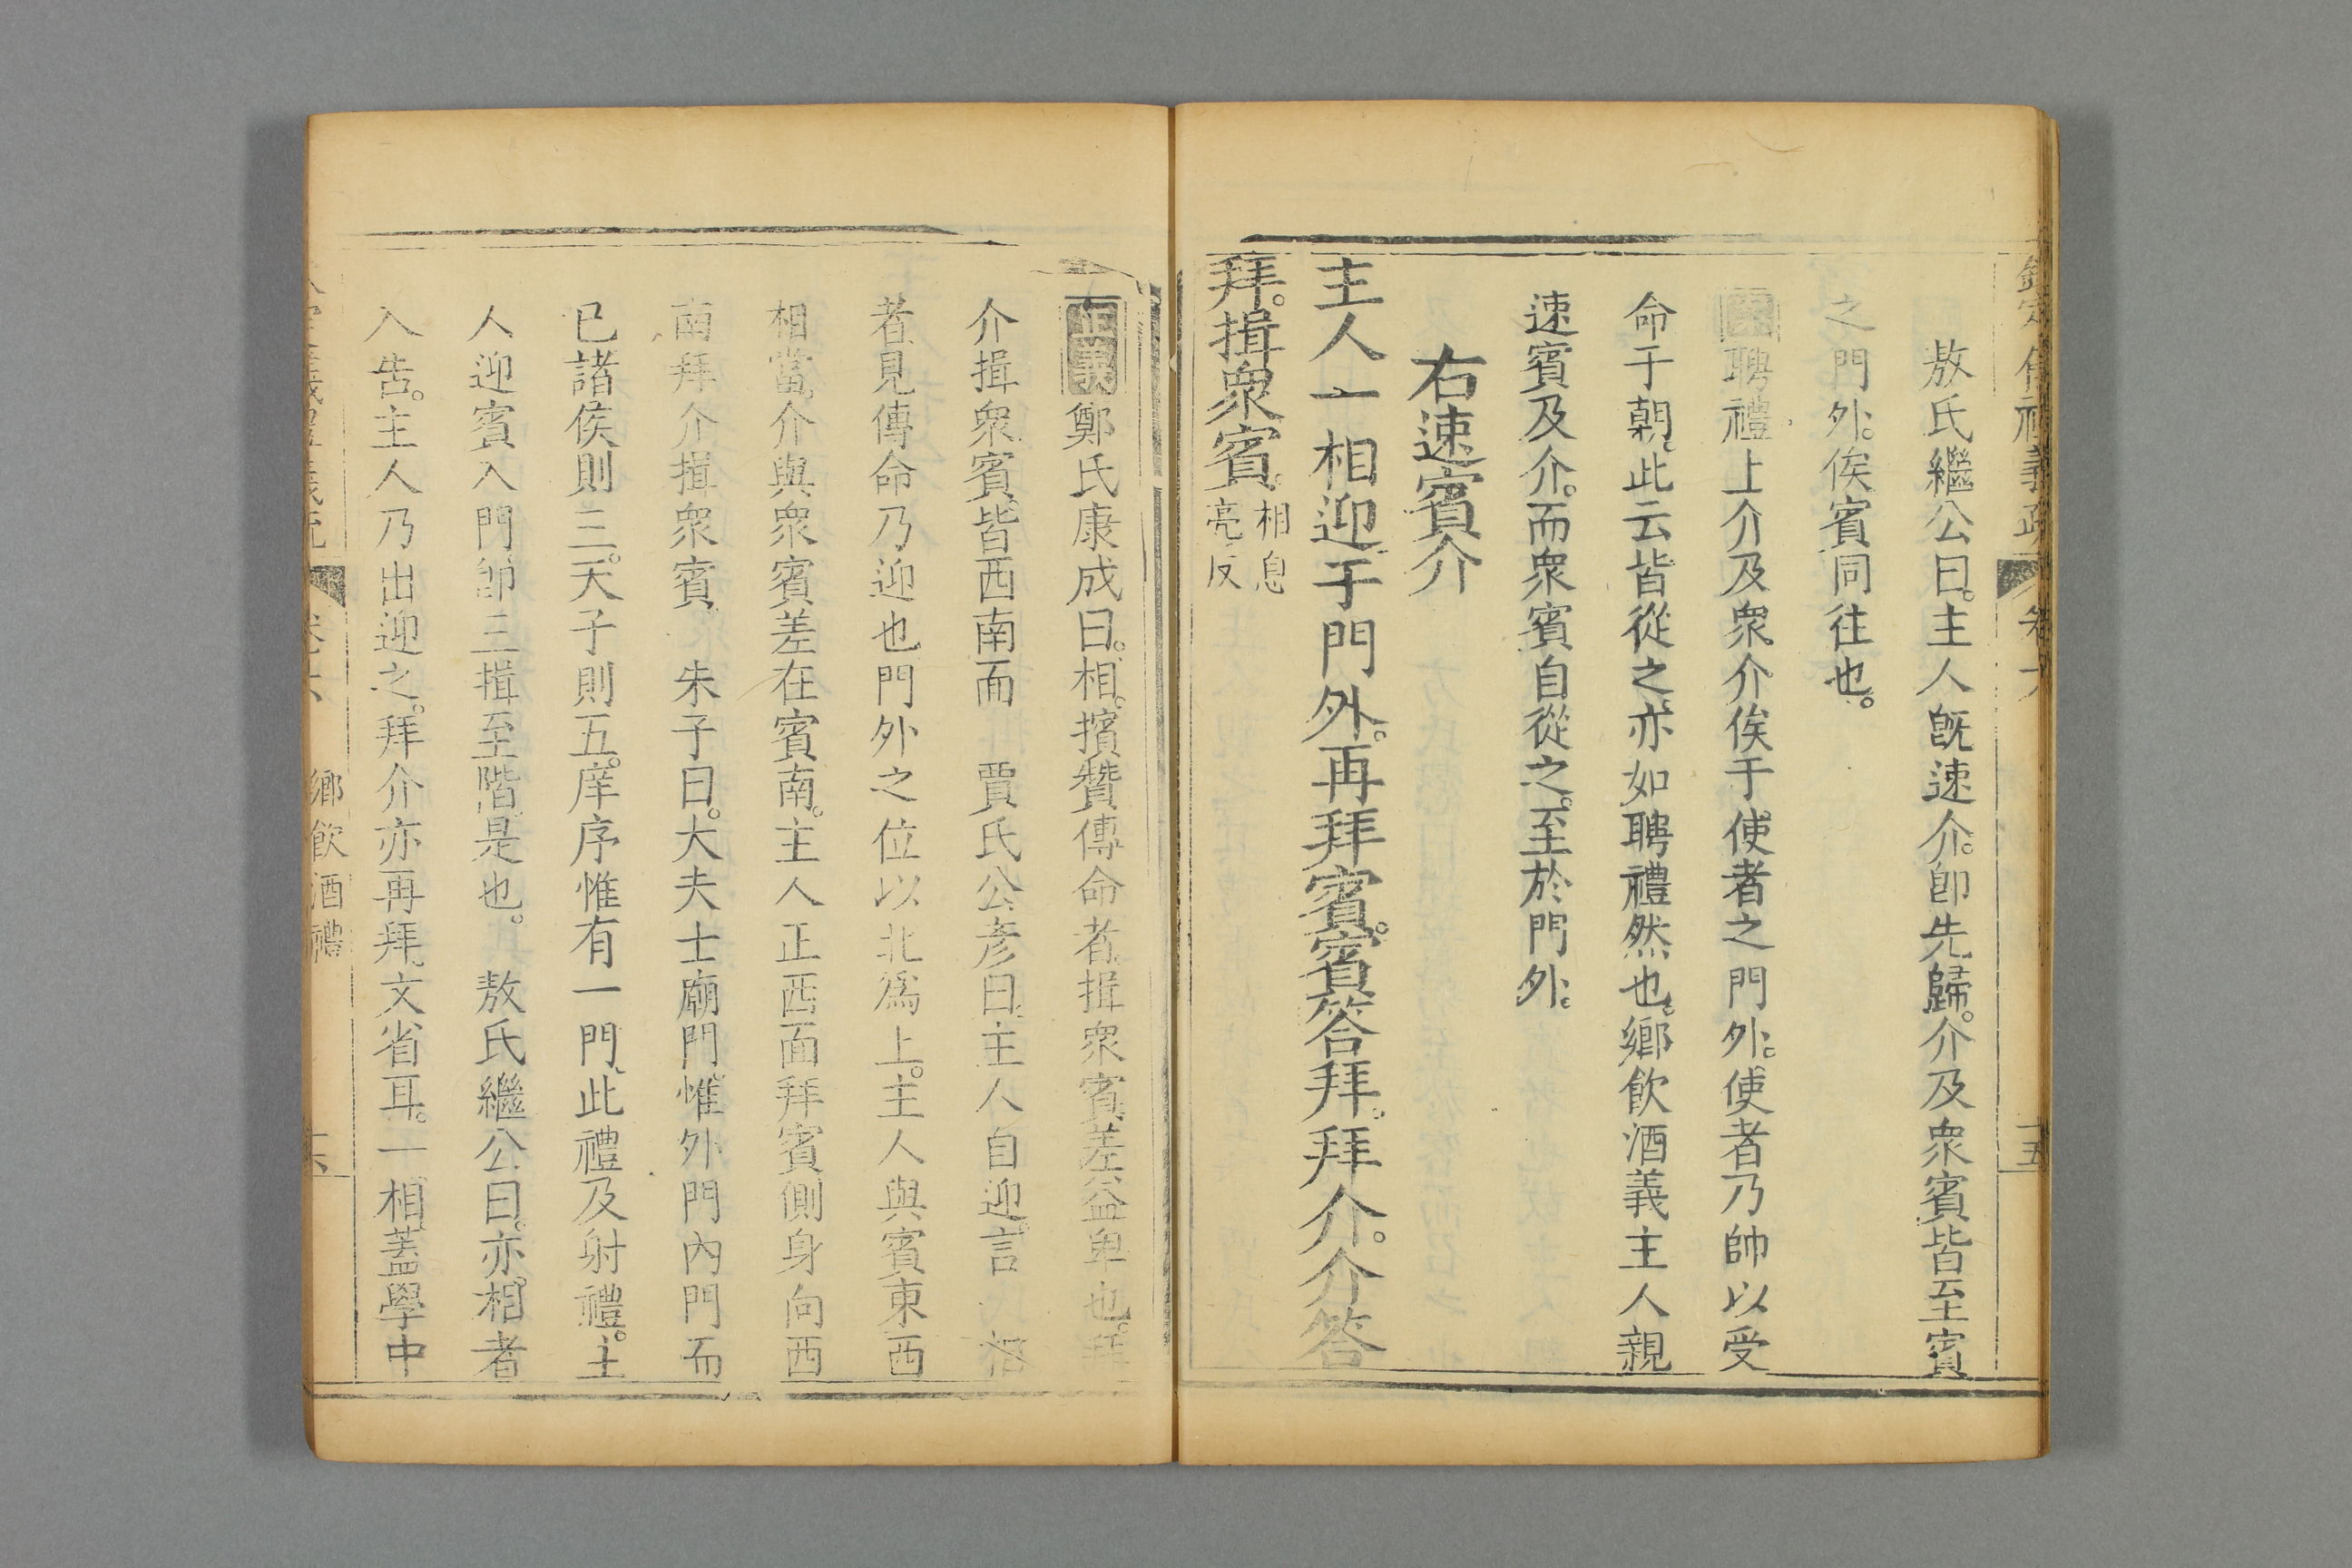 欽定儀禮義疏 卷六 十五
敖氏繼公曰。主人既速介。卽先歸。介及衆賓皆至賓
之門外。俟賓同往也。
聘禮上介及衆介俟于使者之門外。使者乃帥以受
命于朝。此云皆從之。亦如聘禮然也。鄉飲酒義主人親
速賓及介。而衆賓自從之。至於門外。
右速賓介
主人一相迎于門外。再拜賓。賓答拜。拜介。介答
拜。揖衆賓。相息
亮反
正義鄭氏康成曰。相。擯贊傳命者。揖衆賓差益卑也。拜
介揖衆賓。皆西南面 賈氏公彥曰主人自迎。言
者見傳命乃迎也門外之位以北爲上。主人與賓東西
相當。介與衆賓差在賓南。主人正西面拜賓側身向西
南拜介揖衆賓 朱子曰。大夫士廟門惟外門內門而
已諸侯則三。天子則五。庠序惟有一門。此禮及射禮。主
人迎賓入門卽三揖至階是也。 敖氏繼公曰。亦。相者
入告。主人乃出迎之。拜介亦再拜。文省耳。一相蓋學中
義禮義疏 卷六 鄉飲酒禮 十六